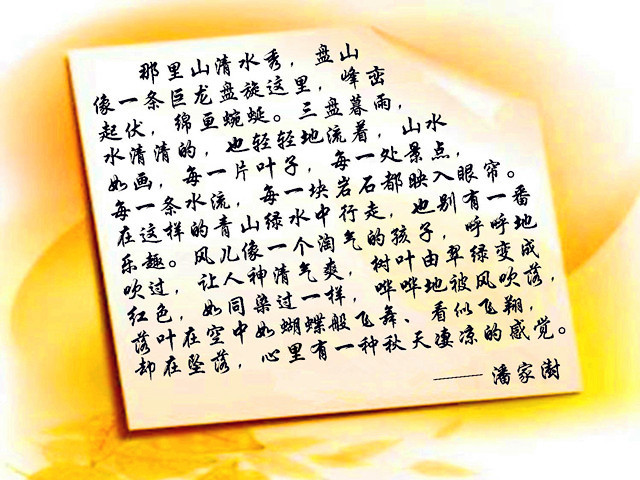 那里山清水秀，盘山
像一条巨龙盘旋这里，峰峦
起伏，绵亘蜿蜒。三盘暮雨，
水清清的，也轻轻地流着，山水
如画，每一片叶子，每一处景点，
每一条水流，每一块岩石都映入眼帘。
在这样的青山绿水中行走，也别有一番
乐趣。风儿像一个淘气的孩子，呼呼地
吹过，让人神清气爽，树叶由翠绿变成
红色，如同染过一样，哗哗地被风吹落，
落叶在空中如蝴蝶般飞舞、看似飞翔，
却在坠落，心里有一种秋天凄凉的感觉。
—— 潘家澍